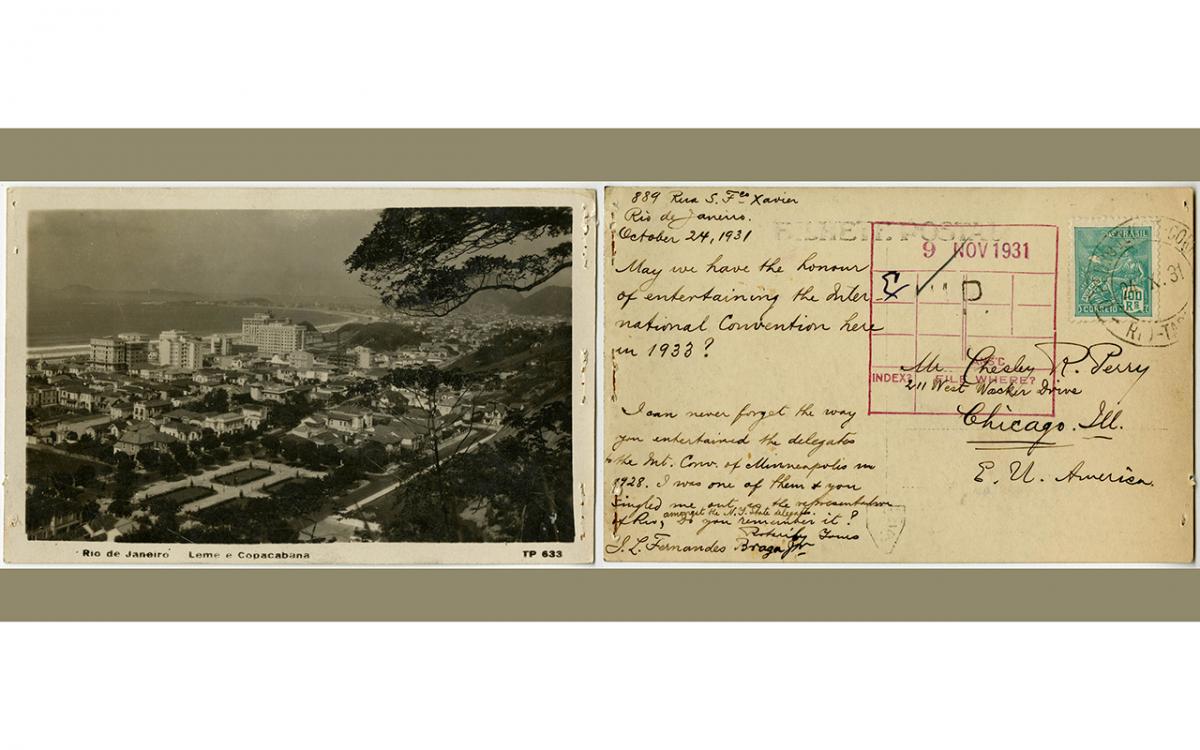 Rio de Janeiro Leme e Copacabana TP 633
889 Rua S. Fco Xavier
Rio de Janeiro.
October 24, 1931
BILHETE POSTAL
May we have the honour
of entertaining the Inter-
national Convention here
in 1933?
I can never forget the way
you entertained the delegates
to the Int. Conv. of Minneapolis in
1928. I was one of them & you
singled me out, as the representative
amongst the N. J. State delegates.
of Rio, Do you remember it?
Rotarily Yours
J. L. Fernandes Braga Jr
9 NOV 1931
P
MISC.
INDEX? FILE WHERE?
BRASIL
700 RS
CORREIO
31
Mr. Chesley R. Perry
211 West Wacker Drive
Chicago. Ill.
E. U. America.